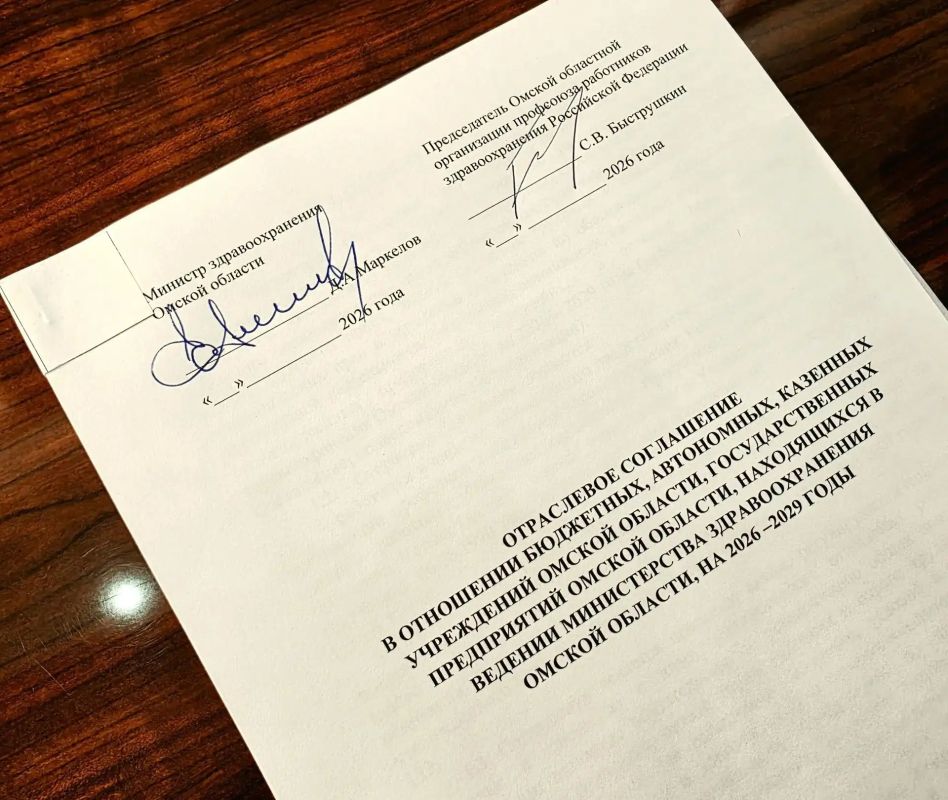 Министр здравоохранения
Омской области
Д.А Маркелов
«__» ____________ 2026 года
Председатель Омской областной
организации профсоюза работников
здравоохранения Российской Федерации
____________ С.В. Быструшкин
«__» __________ 2026 года
ОТРАСЛЕВОЕ СОГЛАШЕНИЕ
В ОТНОШЕНИИ БЮДЖЕТНЫХ, АВТОНОМНЫХ, КАЗЕННЫХ
УЧРЕЖДЕНИЙ ОМСКОЙ ОБЛАСТИ, ГОСУДАРСТВЕННЫХ
ПРЕДПРИЯТИЙ ОМСКОЙ ОБЛАСТИ, НАХОДЯЩИХСЯ В
ВЕДЕНИИ МИНИСТЕРСТВА ЗДРАВООХРАНЕНИЯ
ОМСКОЙ ОБЛАСТИ, НА 2026 –2029 ГОДЫ